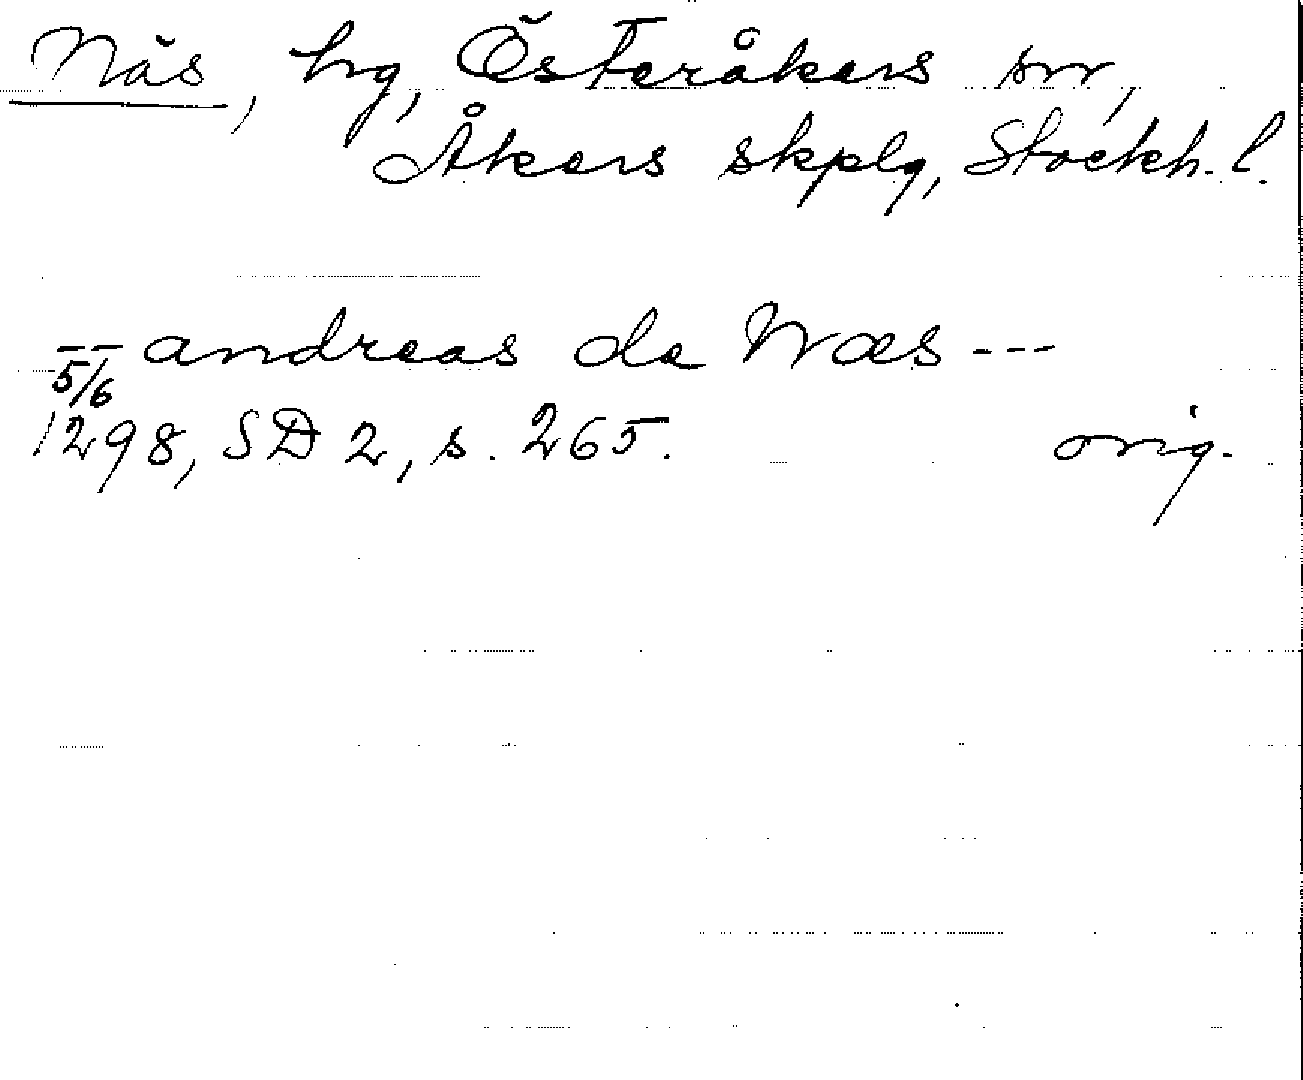 Näs, hg, Österåkers sn,
Åkers skplg, Stockh. l.
-- andreas de Næs ---
5/6
1298, SD 2, s. 265. orig.